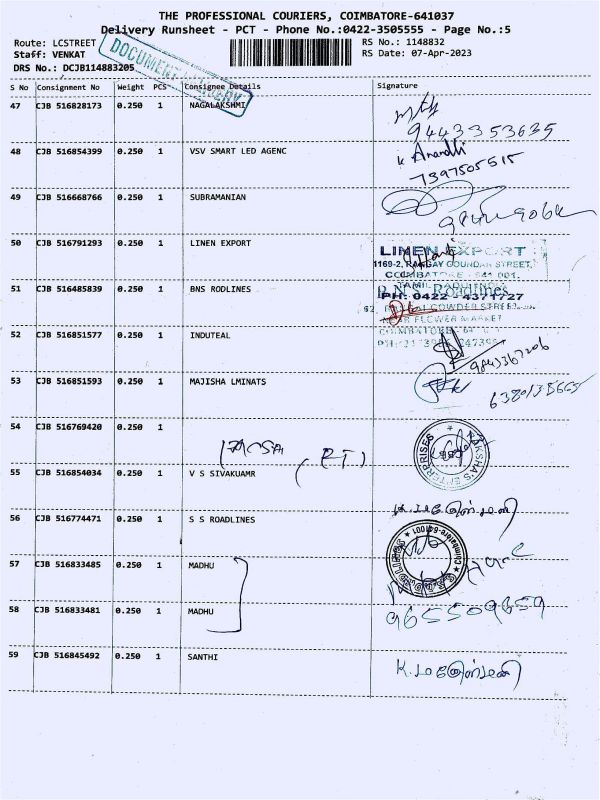 THE PROFESSIONAL COURIERS, COIMBATORE-641037
Delivery Runsheet - PCT - Phone No.:0422-3505555 - Page No.:5
Route: LCSTREET
RS No.: 1148832
Staff: VENKAT
RS Date: 07-Apr-2023
DRS No.: DCJB114883205
DOCUMENT DELIVERY
S No Consignment No Weight PCS Consignee Details Signature
47 CJB 516828173 0.250 1 NAGALAKSHMI
9443353635
48 CJB 516854399 0.250 1 VSV SMART LED AGENC
K Anandhi
7397505515
49 CJB 516668766 0.250 1 SUBRAMANIAN
50 CJB 516791293 0.250 1 LINEN EXPORT
LINEN EXPORT
1169-2, RANGAY GOUNDAR STREET,
COIMBATORE - 641 001.
TAMIL NADU INDIA
PH: 0422 - 4371727
51 CJB 516485839 0.250 1 BNS RODLINES
B.N.S. Roadlines
FLOWER MARKET
52 CJB 516851577 0.250 1 INDUTEAL
9843367206
53 CJB 516851593 0.250 1 MAJISHA LMINATS
6380135665
54 CJB 516769420 0.250 1
(RT)
RAKSHA'S ENTERPRISES
55 CJB 516854034 0.250 1 V S SIVAKUAMR
56 CJB 516774471 0.250 1 S S ROADLINES
Coimbatore-641001
57 CJB 516833485 0.250 1 MADHU
58 CJB 516833481 0.250 1 MADHU
9655509659
59 CJB 516845492 0.250 1 SANTHI